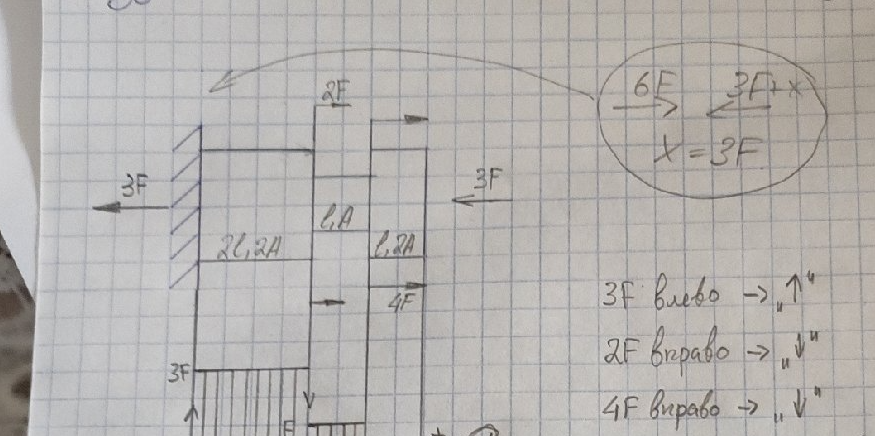 6F 3F+x
x = 3F
2F
3F
3F
l,A
2l,2A
l,2A
4F
3F влево → „↑"
2F вправо → „↓"
4F вправо → „↓"
3F
F